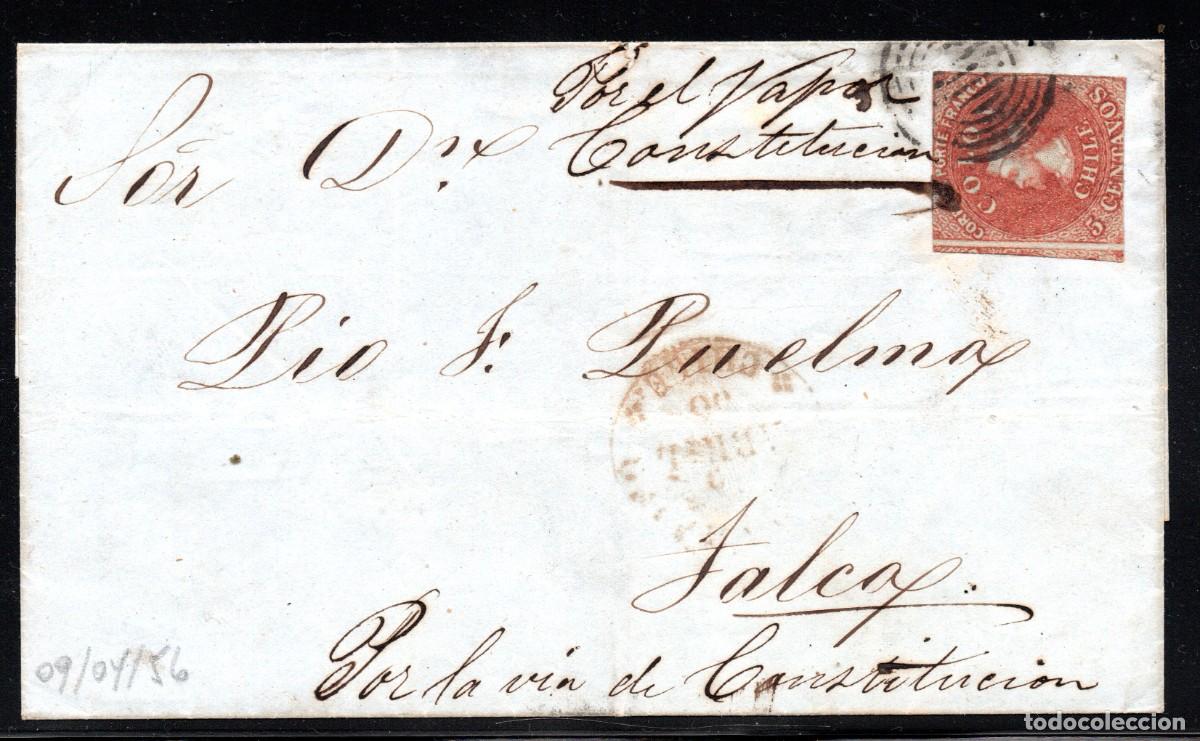 Por el Vapor
Constitucion
Sór Dn.
Pio F. Puelma
Talca.
Por la via de Constitucion
COLON
CHILE
PORTE FRANCO
CORREOS
5 CENTAVOS
09/04/56
todocoleccion